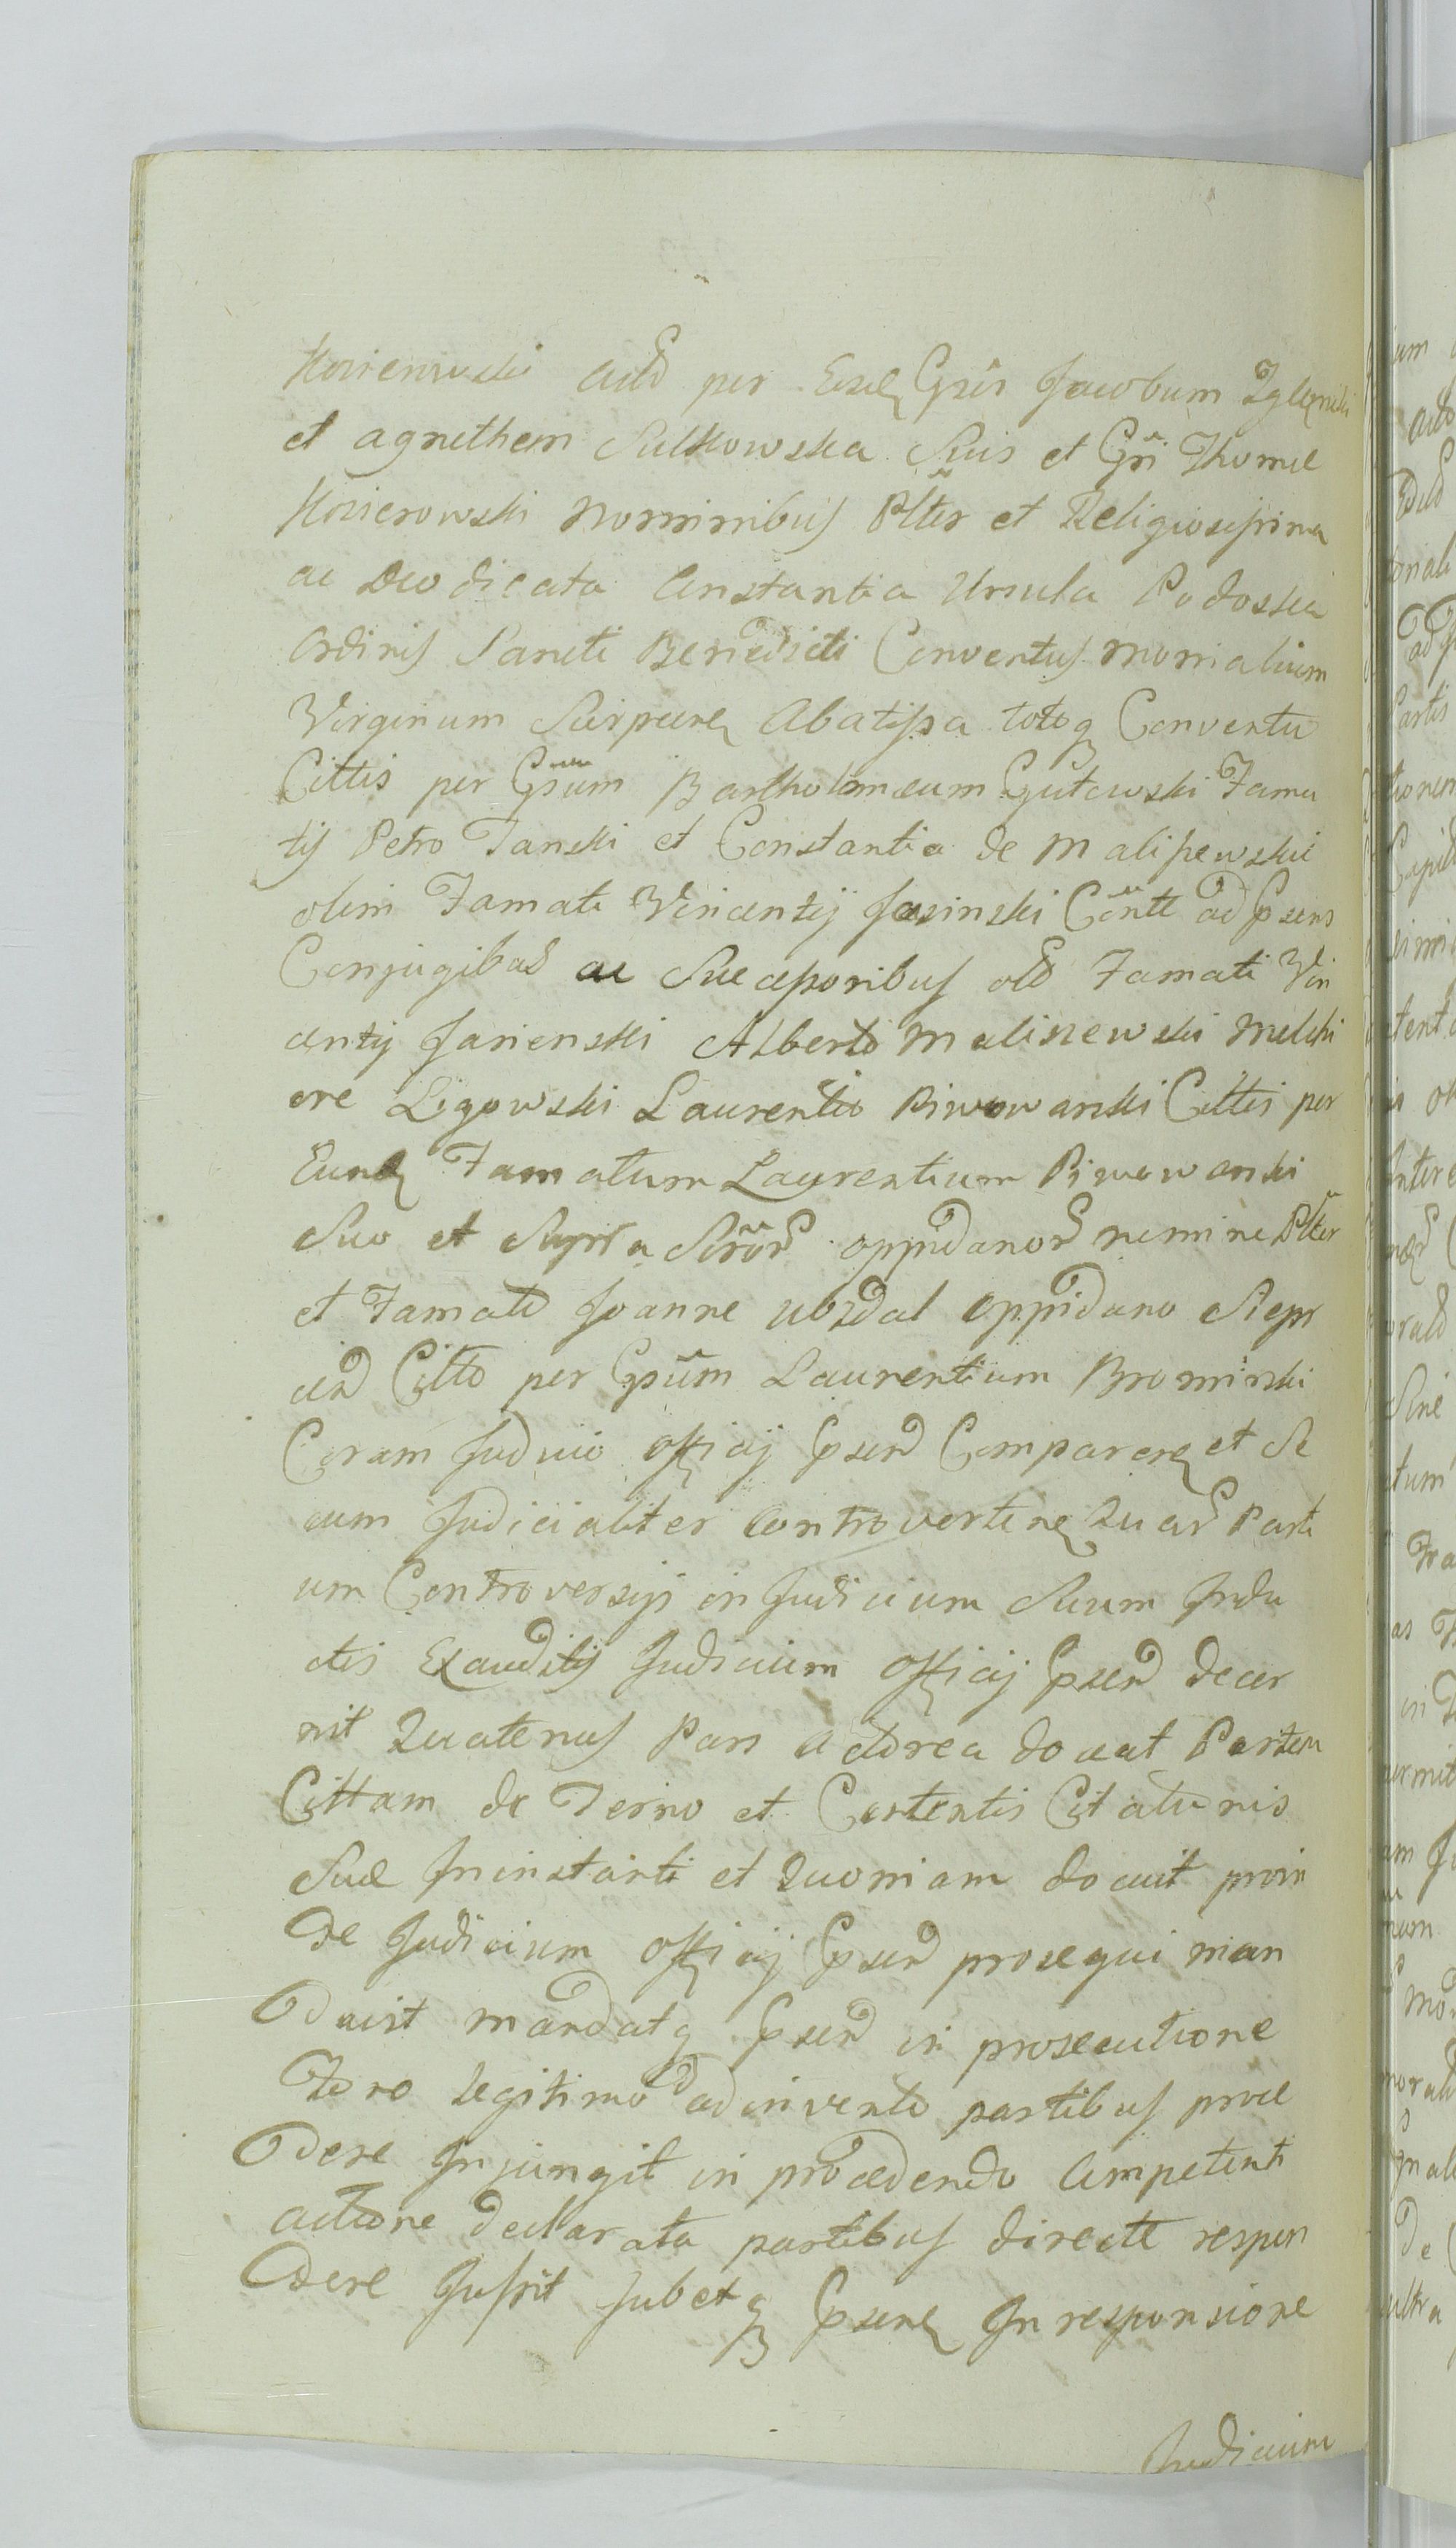 Kozierowski Actō per Eund Gsūs Jacobum Zglenicki
et agnethem Sulkowska Suis et Gsi Thomæ
Kozierowski nominibus Plter et Religiosissima
ac Deo dicata Constantia Ursula Podoska
Ordinis Sancti Benedicti Conventus monialium
Virginum Sierpcen Abatissa totoq Conventu
Cittis per Gsum Bartholomæum Gutowski Fama
tis Petro Janski et Constantia de Maliszewskie
olim Famati Vincentij Jasinski Contt ad Psens
Conjugibus ac Successoribus olb Famati Vin
centij Jasienski Alberto Maliszewski Melchi
ore Ligowski Laurentio Piwowarski Cittis per
Eund Famatum Laurentium Piwowarski
Suo et Supra Scrōr oppidanor nomine Plter
et Famato Joanne uozdal oppidano Sierp
cen Citto per Gsum Laurentium Brominski
Coram Judicio officij Psen Comparen et Se
cum Judicialiter controverten Quar Parti
um Controversijs in Judicium Suum Indu
ctis Exauditis Judicium Officij Psen decer
nit Quatenus Pars actorea doceat Partem
Cittam de Termo et Contentis Citationis
Suæ In instanti et Quoniam docuit proin
de Judicium officij Psen prosequi man
davit mandatq Psen in prosecutione
Foro legitimo adinvento partibus proce
dere Injungit in procedendo Competenti
actione declarata partibus directe respon
dere Jussit Jubetq Psen In responsione
Judicium